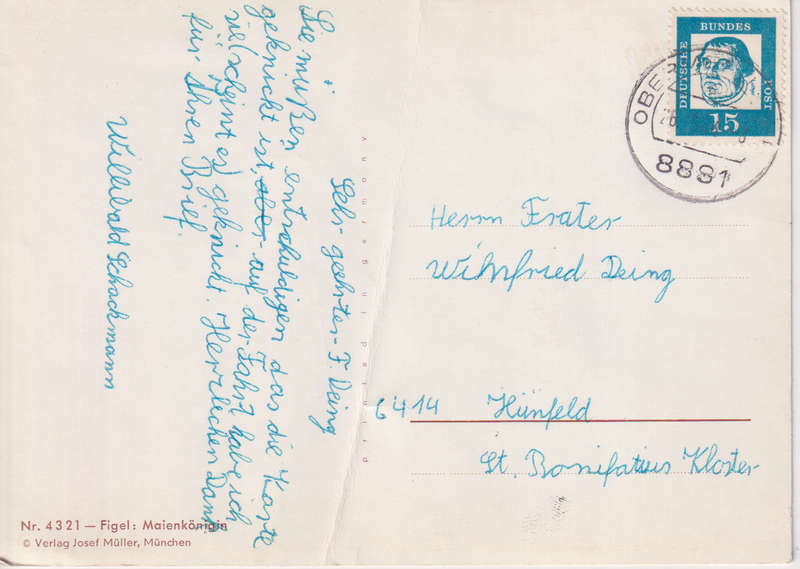 Sehr geehrter F. Deing
Sie müßen entschuldigen das die Karte
geknickt ist, aber auf der Fahrt habe ich
sie (scheint es) geknickt. Herzlichen Dank
für Ihren Brief.
Willibald Schackmann
printed in germany
Nr. 4321 — Figel: Maienkönigin
© Verlag Josef Müller, München
DEUTSCHE
BUNDES
POST
15
8881
Herrn Frater
Wihnfried Deing
6414 Hünfeld
St. Bonifatius Kloster